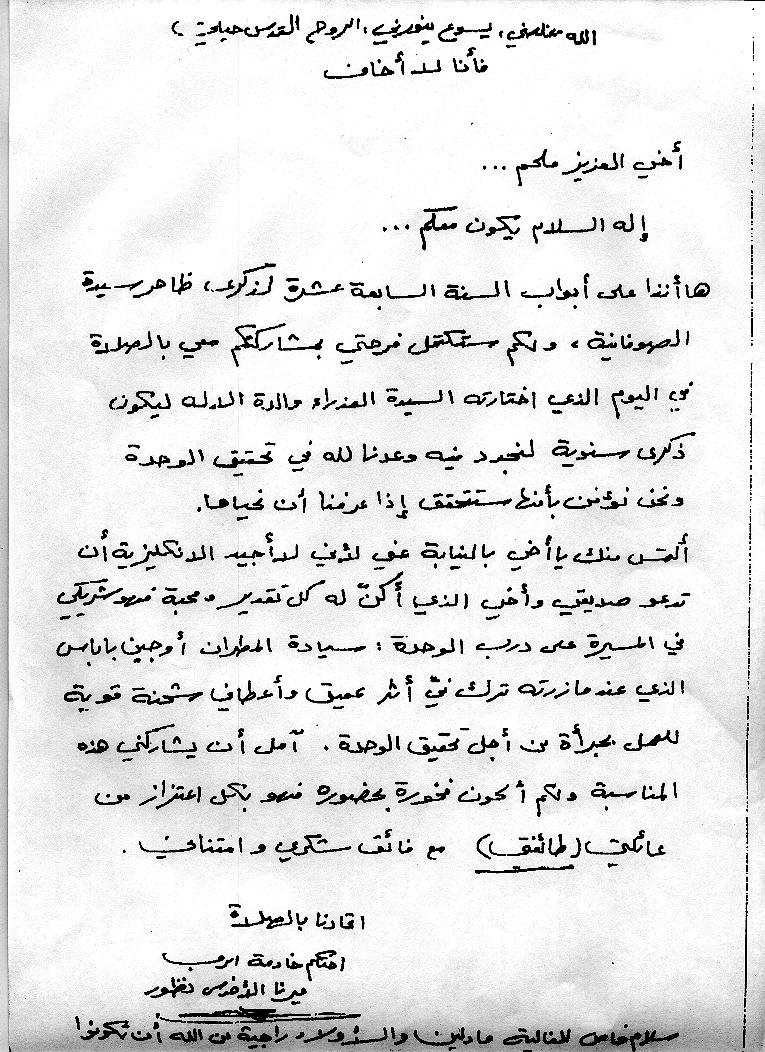 الله يخلصني، يسوع ينورني، الروح القدس حياتي،
فأنا لا أخاف
أخي العزيز ملحم ...
إله السلام يكون معكم ...
ها أنذا على أبواب السنة السابعة عشرة لذكرى، ظاهر سيدة
الصوفانية، ولكم ستكتمل فرحتي بمشاركتكم معي بالصلاة
في اليوم الذي اختارته السيدة العذراء والدة الاله ليكون
ذكرى سنوية لنجدد فيه وعدنا لله في تحقيق الوحدة
ونحن نؤمن بأنها ستتحقق إذا عرفنا أن نحياها.
ألتمس منك يا أخي بالنيابة عني لأني لا أجيد الانكليزية أن
تدعو صديقي وأخي الذي أكنّ له كل تقدير ومحبة فهو شريكي
في المسيرة على درب الوحدة: سيادة المطران أوجين باباس
الذي عندما زرته ترك فيّ أثر عميق وأعطاني شحنة قوية
للعمل بجرأة من أجل تحقيق الوحدة. آمل أن يشاركني هذه
المناسبة ولكم أكون فخورة بحضوره فهو بكل اعتزاز من
عائلتي (طائفتي) مع فائق شكري وامتناني.
اتحادنا بالصلاة
اختكم خادمة الرب
ميرنا الأخرس نظور
سلام خاص للغالية مادلين والأولاد راجية من الله أن تكونوا